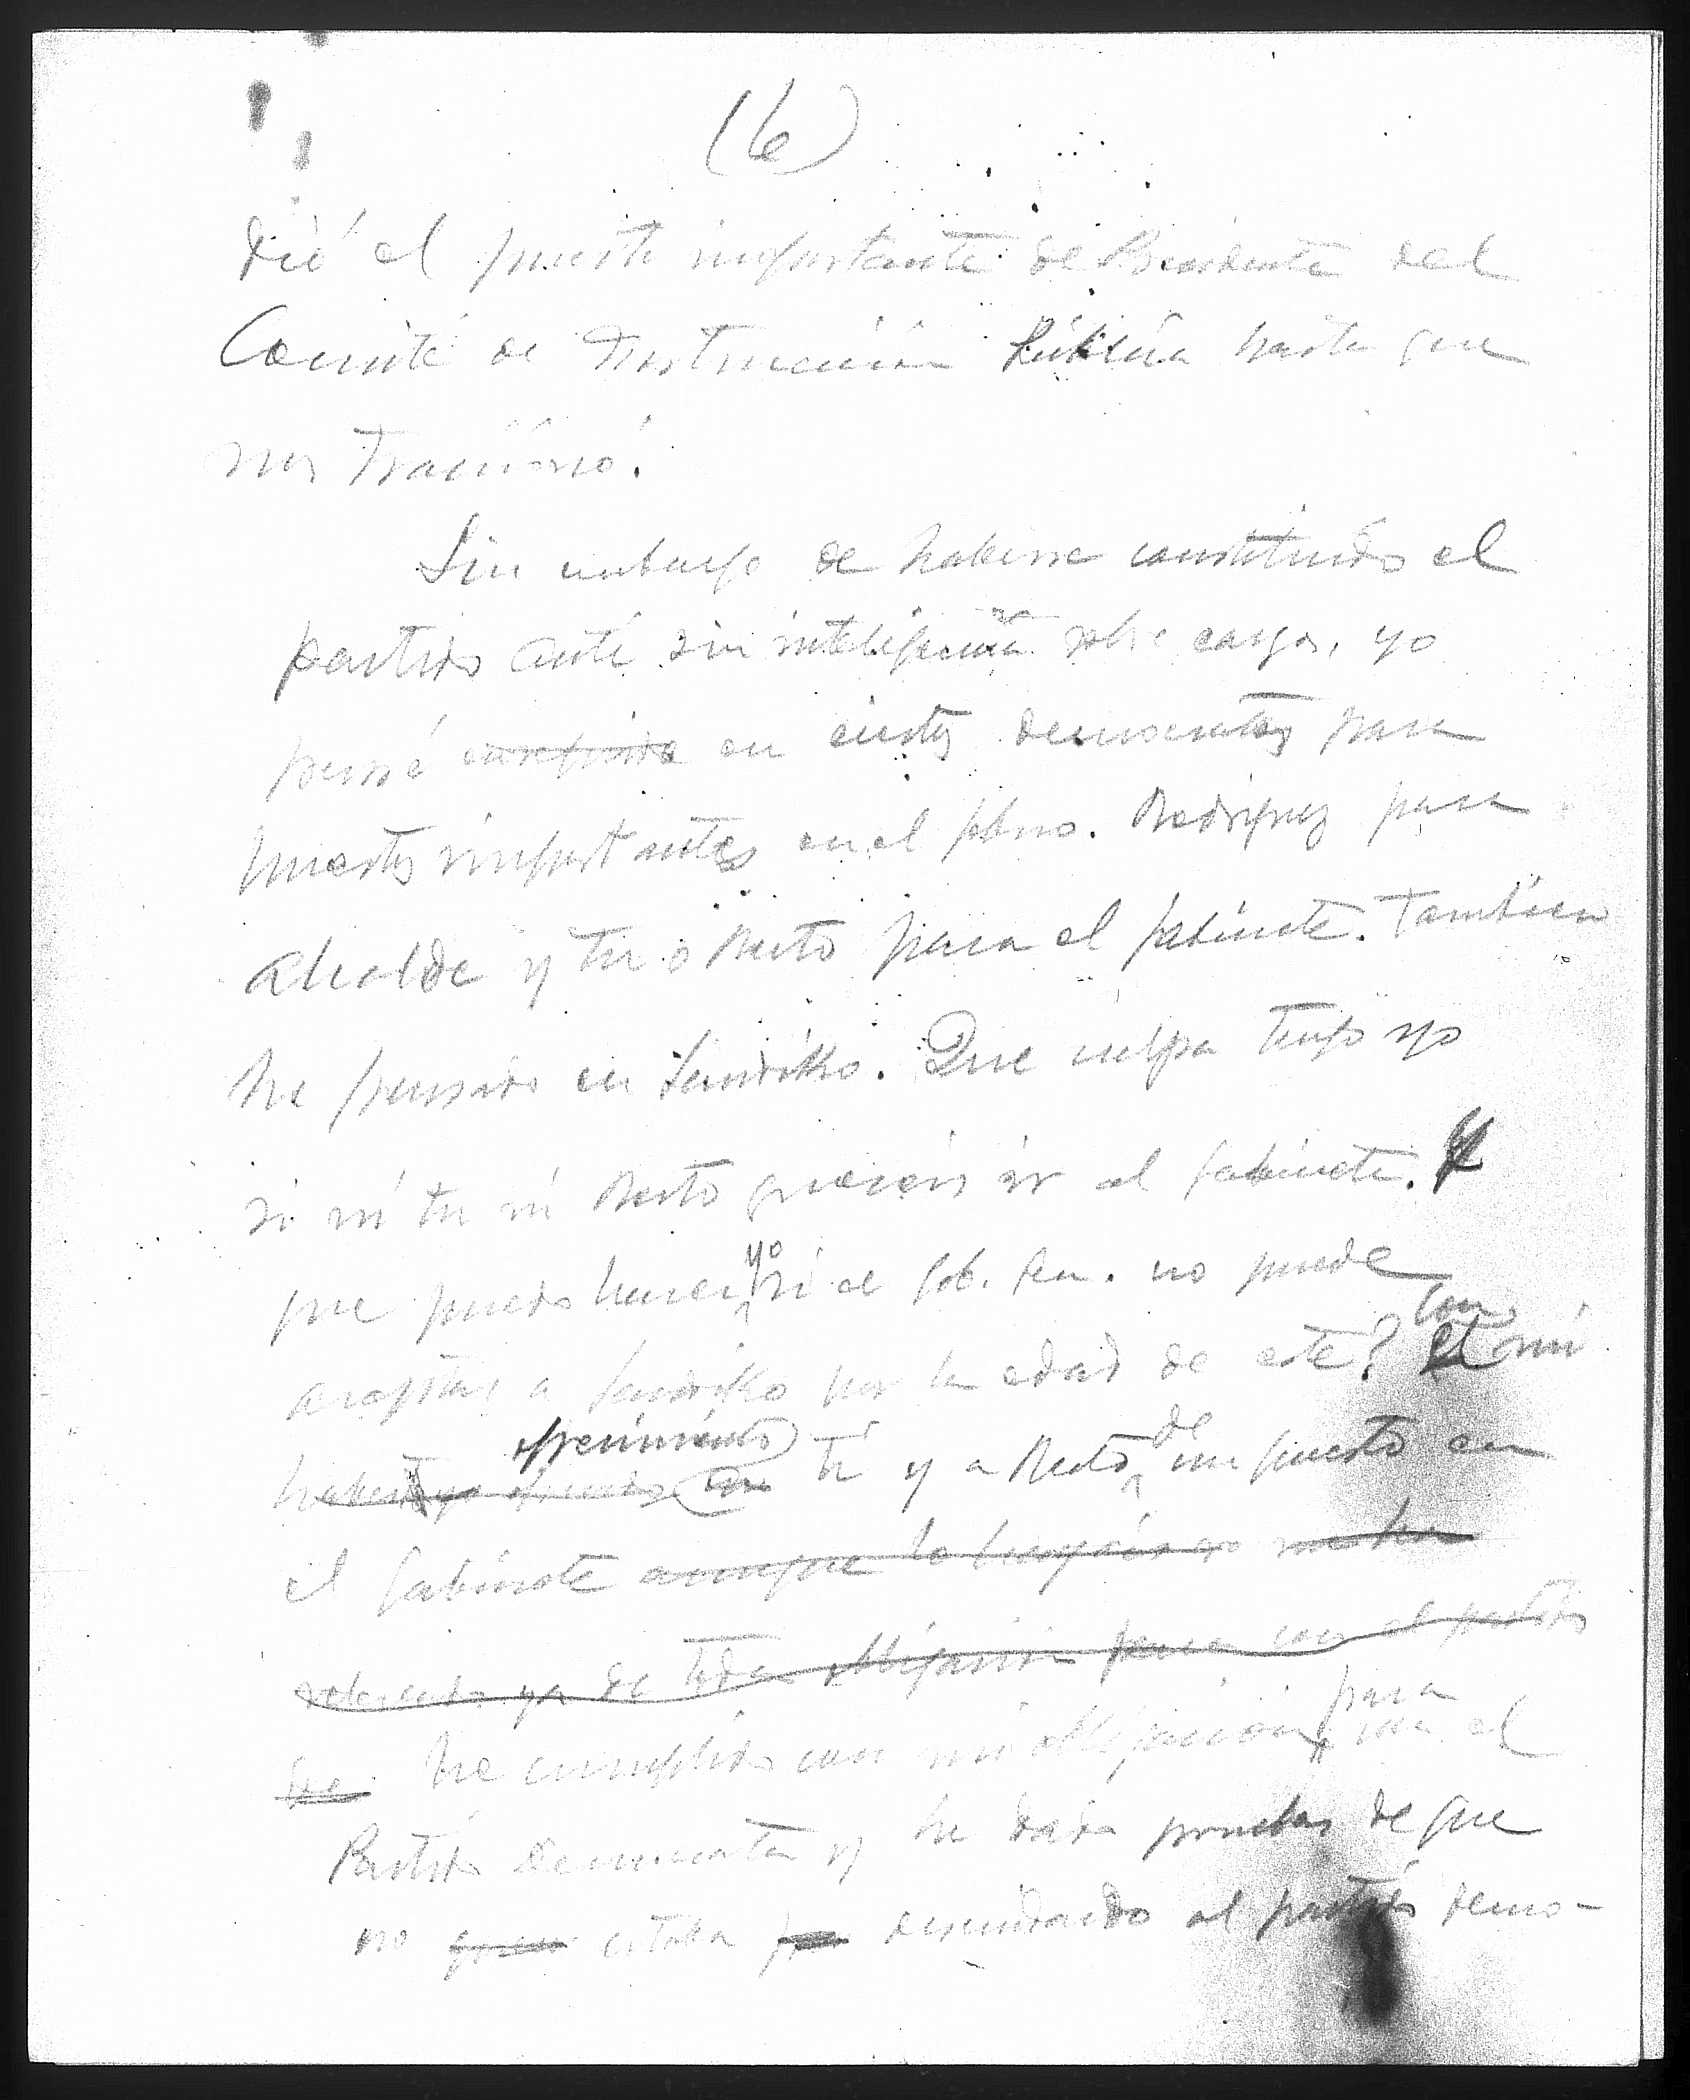 (6)
dió el puesto importante de Presidente del
Comité de Instrucción Pública hasta que
nos traicionó.
Sin embargo de haberse constituido el
partido anti sin inteligencia sobre cargos, yo
pensé en ciertos democratas para
puestos importantes en el gbno. Rodriguez para
alcalde y tu o Recto para el gabinete. Tambien
he pensado en Sandiko. Que culpa tengo yo
si ni tu ni Recto quereis ir al gabinete. Y
que puedo hacer yo si el gob. gen. no puede
aceptar a Sandiko por la edad de este? Con mi
ofrecimiento a ti y a Recto de un puesto en
el gabinete aunque lo
relevado ya de toda obligación para con el partido
he he cumplido con mi obligación para con el
Partido Democrata y he dado pruebas de que
no estaba descuidando al partido demo-